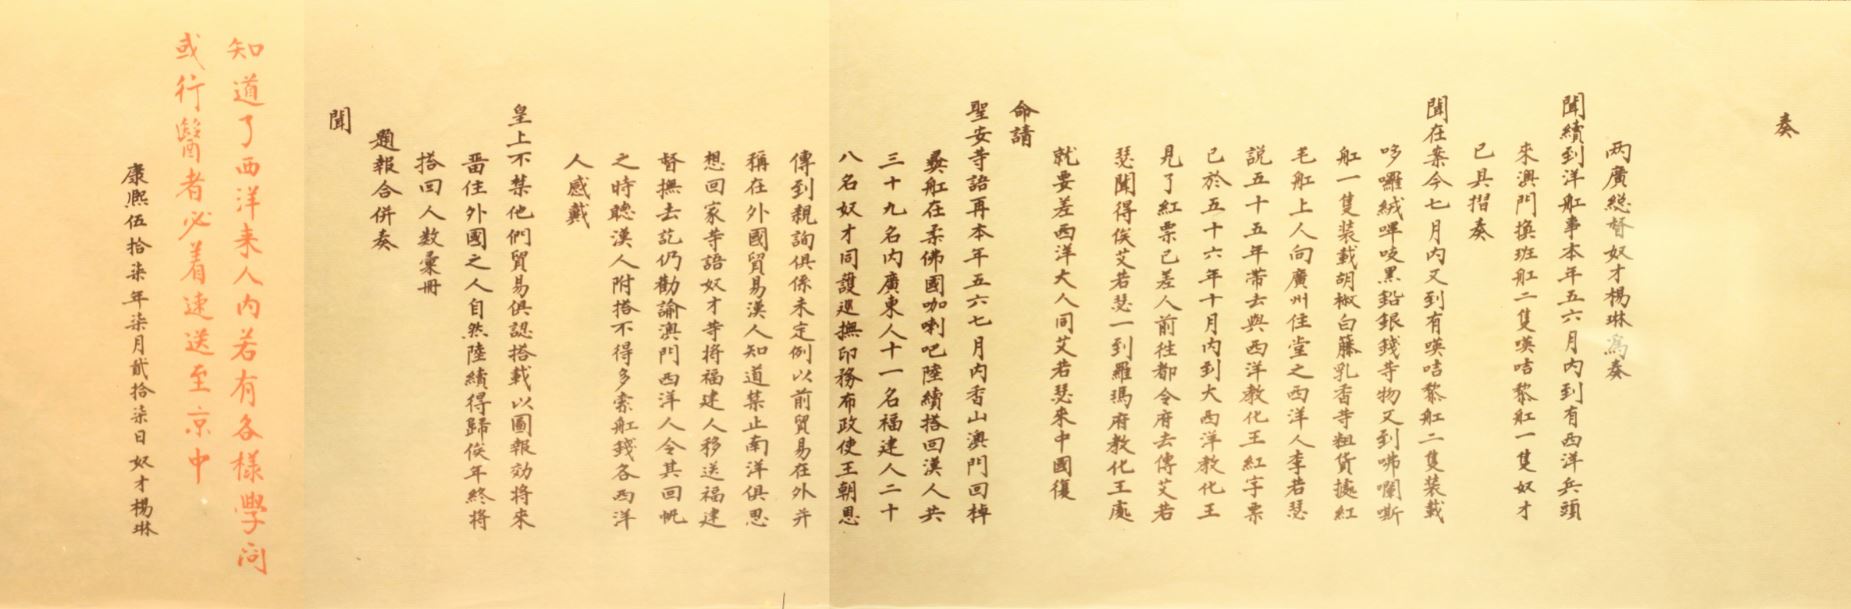 奏
兩廣總督奴才楊琳為奏
聞續到洋舡事本年五六月內到有西洋兵頭
來澳門換班舡二隻嘆咭黎舡一隻奴才
已具摺奏
聞在案今七月內又到有嘆咭黎舡二隻裝載
哆囉絨嗶吱黑鉛銀錢等物又到咈囒嘶
舡一隻裝載胡椒白藤乳香等粗貨據紅
毛舡上人向廣州住堂之西洋人李若瑟
說五十五年帶去與西洋教化王紅字票
已於五十六年十月內到大西洋教化王
見了紅票已差人前往都令府去傳艾若
瑟聞得俟艾若瑟一到羅瑪府教化王處
就要差西洋大人同艾若瑟來中國復
命請
聖安等語再本年五六七月內香山澳門回棹
彛舡在柔佛國咖喇吧陸續搭回漢人共
三十九名內廣東人十一名福建人二十
八名奴才同護巡撫印務布政使王朝恩
傳到親詢俱係未定例以前貿易在外并
稱在外國貿易漢人知道禁止南洋俱思
想回家等語奴才等將福建人移送福建
督撫去訖仍勸諭澳門西洋人令其回帆
之時聽漢人附搭不得多索舡錢各西洋
人感戴
皇上不禁他們貿易俱認搭載以圖報効將來
畱住外國之人自然陸續得歸俟年終將
搭回人數彙冊
題報合併奏
聞
知道了西洋來人內若有各樣學問
或行醫者必着速送至京中
康熙伍拾柒年柒月貳拾柒日奴才楊琳